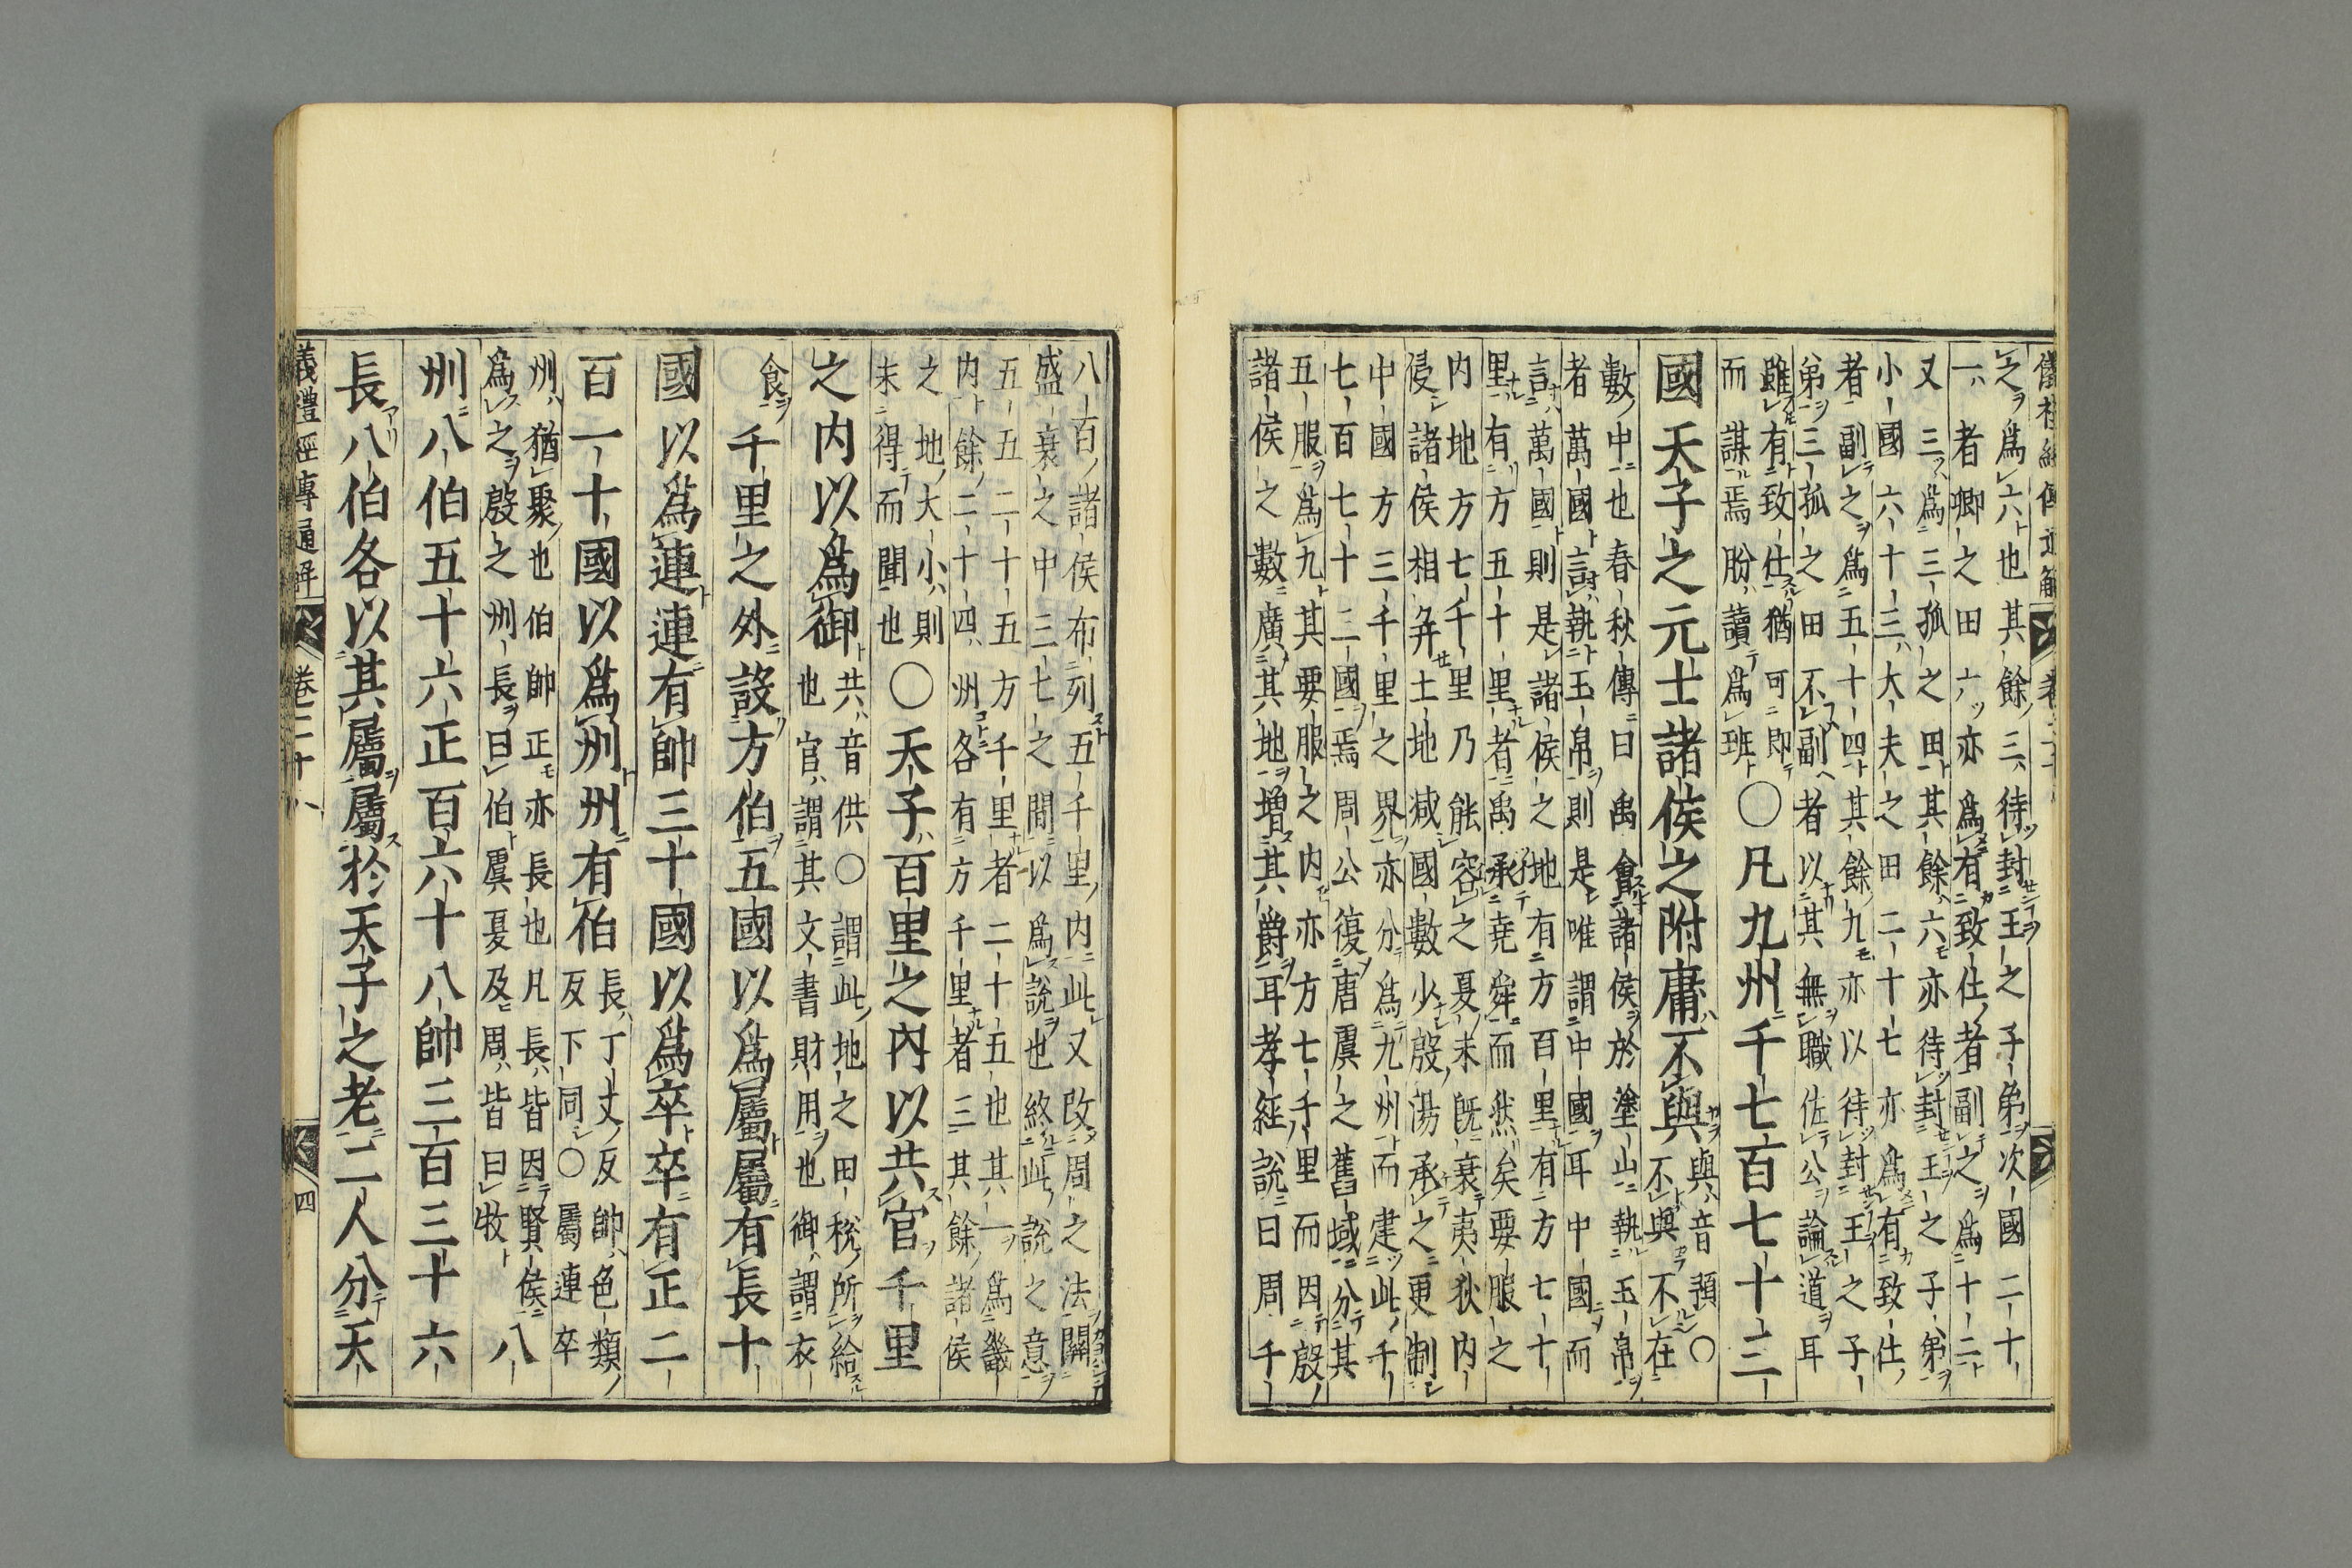 之爲六也其餘三待封王之子弟次國二十
一者卿之田六亦爲有致仕者副之爲十二
又三爲三孤之田其餘六亦待封王之子弟
小國六十三大夫之田二十七亦爲有致仕
者副之爲五十四其餘九亦以待封王之子
弟三孤之田不副者以其無職佐公論道耳
雖有致仕猶可即
而謀焉朌讀爲班
〇凡九州千七百七十三
國天子之元士諸侯之附庸不與
與音預〇
不與不在
數中也春秋傳曰禹會諸侯於塗山執玉帛
者萬國言執玉帛則是唯謂中國耳中國而
言萬國則是諸侯之地有方百里有方七十
里有方五十里者禹承堯舜而然矣要服之
內地方七千里乃能容之夏末既衰夷狄內
侵諸侯相并土地減國數少殷湯承之更制
中國方三千里之界亦分爲九州而建此千
七百七十三國焉周公復唐虞之舊域分其
五服爲九其要服之內亦方七千里而因殷
諸侯之數廣其地增其爵耳孝經說曰周千
八百諸侯布列五千里內此又改周之法關
盛衰之中三七之間以爲說也終此說之意
五五二十五方千里者二十五也其一爲畿
內餘二十四州各有方千里者三其餘諸侯
之地大小則
未得而聞也
〇天子百里之內以共官千里
之內以爲御
共音供〇謂此地之田稅所給
也官謂其文書財用也御謂衣
食
千里之外設方伯五國以爲屬屬有長十
國以爲連連有帥三十國以爲卒卒有正二
百一十國以爲州州有伯
長丁丈反帥色類
反下同〇屬連卒
州猶聚也伯帥正亦長也凡長皆因賢侯
爲之殷之州長曰伯虞夏及周皆曰牧
八
州八伯五十六正百六十八帥三百三十六
長八伯各以其屬屬於天子之老二人分天
儀禮經傳通解 卷二十八 四